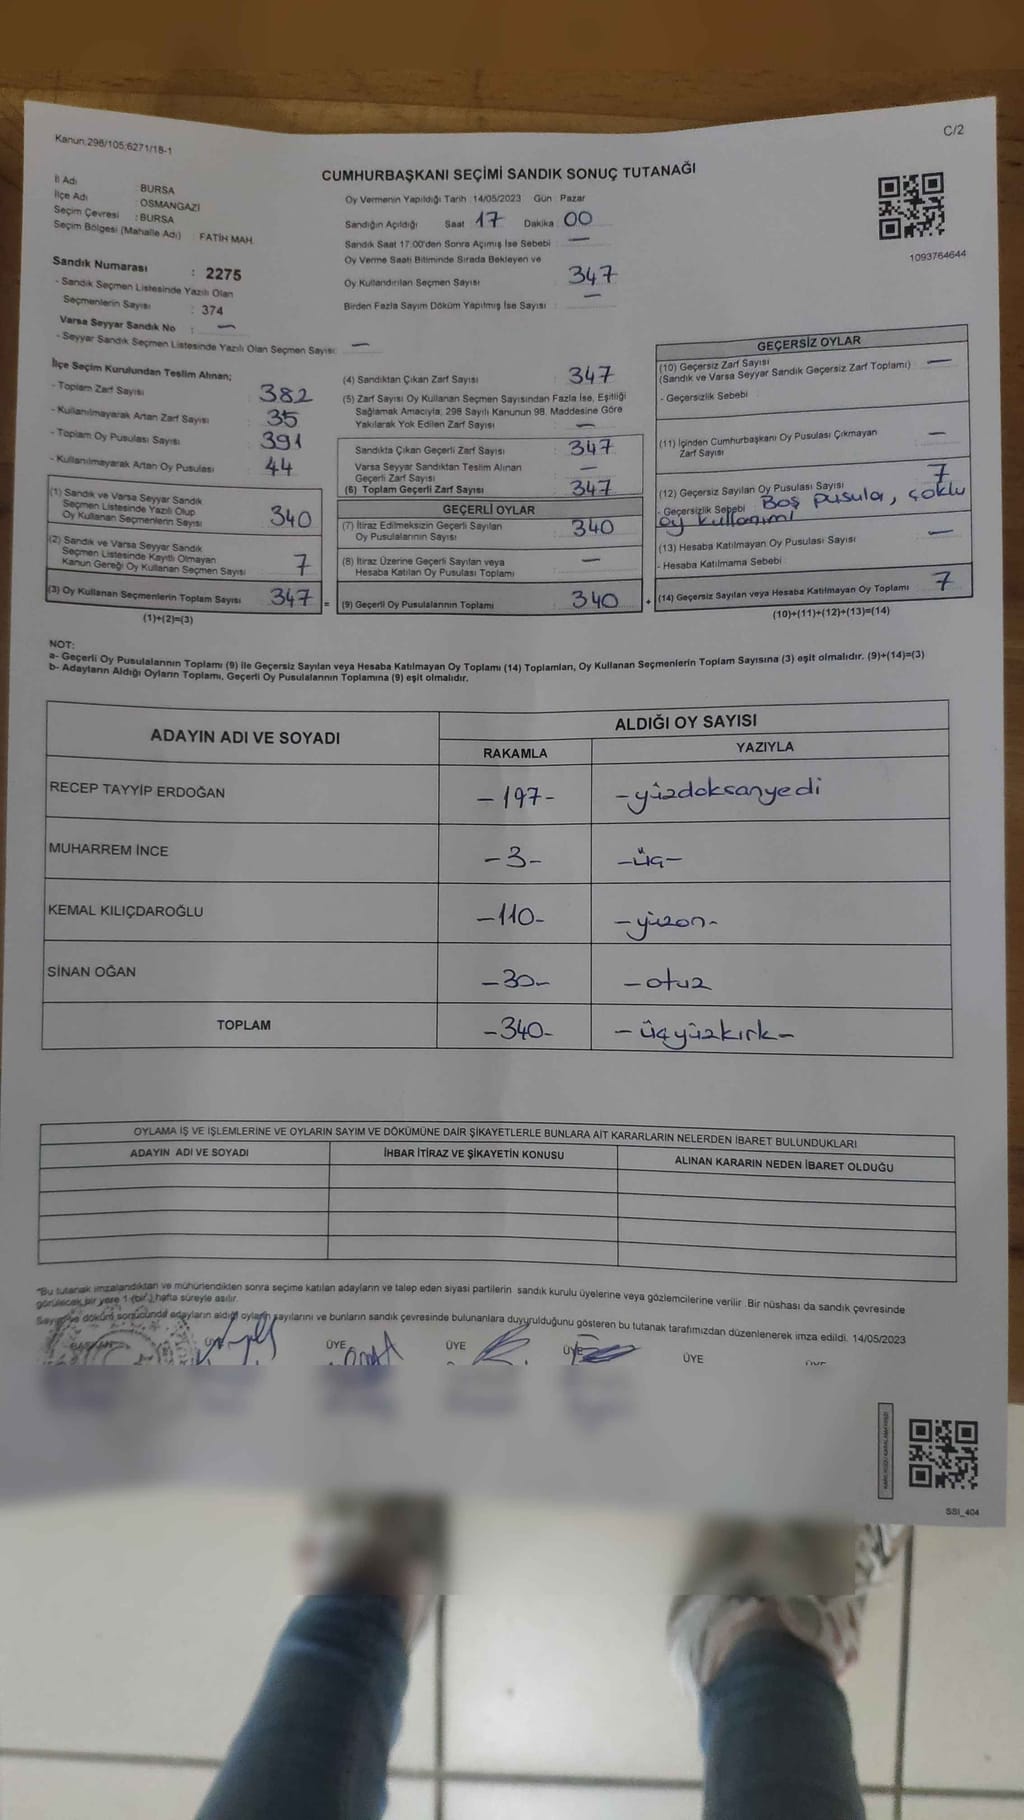 Kanun.298/105;6271/18-1
C/2
CUMHURBAŞKANI SEÇİMİ SANDIK SONUÇ TUTANAĞI
İl Adı : BURSA
İlçe Adı : OSMANGAZİ
Seçim Çevresi : BURSA
Seçim Bölgesi (Mahalle Adı) : FATİH MAH.
Sandık Numarası : 2275
- Sandık Seçmen Listesinde Yazılı Olan
Seçmenlerin Sayısı : 374
Varsa Seyyar Sandık No : —
- Seyyar Sandık Seçmen Listesinde Yazılı Olan Seçmen Sayısı: —
Oy Vermenin Yapıldığı Tarih :14/05/2023 Gün : Pazar
Sandığın Açıldığı Saat 17 Dakika 00
Sandık Saat 17:00'den Sonra Açımış İse Sebebi : —
Oy Verme Saati Bitiminde Sırada Bekleyen ve
Oy Kullandırılan Seçmen Sayısı : 347
Birden Fazla Sayım Döküm Yapılmış İse Sayısı : —
1093764644
İlçe Seçim Kurulundan Teslim Alınan;
- Toplam Zarf Sayısı : 382
- Kullanılmayarak Artan Zarf Sayısı : 35
- Toplam Oy Pusulası Sayısı : 391
- Kullanılmayarak Artan Oy Pusulası : 44
(1) Sandık ve Varsa Seyyar Sandık
Seçmen Listesinde Yazılı Olup
Oy Kullanan Seçmenlerin Sayısı : 340
(2) Sandık ve Varsa Seyyar Sandık
Seçmen Listesinde Kayıtlı Olmayan
Kanun Gereği Oy Kullanan Seçmen Sayısı : 7
(3) Oy Kullanan Seçmenlerin Toplam Sayısı : 347 =
(1)+(2)=(3)
(4) Sandıktan Çıkan Zarf Sayısı : 347
(5) Zarf Sayısı Oy Kullanan Seçmen Sayısından Fazla İse, Eşitliği
Sağlamak Amacıyla, 298 Sayılı Kanunun 98. Maddesine Göre
Yakılarak Yok Edilen Zarf Sayısı : —
Sandıkta Çıkan Geçerli Zarf Sayısı : 347
Varsa Seyyar Sandıktan Teslim Alınan
Geçerli Zarf Sayısı : —
(6) Toplam Geçerli Zarf Sayısı : 347
GEÇERLİ OYLAR
(7) İtiraz Edilmeksizin Geçerli Sayılan
Oy Pusulalarının Sayısı : 340
(8) İtiraz Üzerine Geçerli Sayılan veya
Hesaba Katılan Oy Pusulası Toplamı : —
(9) Geçerli Oy Pusulalarının Toplamı : 340 +
GEÇERSİZ OYLAR
(10) Geçersiz Zarf Sayısı
(Sandık ve Varsa Seyyar Sandık Geçersiz Zarf Toplamı) : —
- Geçersizlik Sebebi
(11) İçinden Cumhurbaşkanı Oy Pusulası Çıkmayan
Zarf Sayısı : —
(12) Geçersiz Sayılan Oy Pusulası Sayısı : 7
- Geçersizlik Sebebi Boş pusula, çoklu
oy kullanımı
(13) Hesaba Katılmayan Oy Pusulası Sayısı : —
- Hesaba Katılmama Sebebi
(14) Geçersiz Sayılan veya Hesaba Katılmayan Oy Toplamı : 7
(10)+(11)+(12)+(13)=(14)
NOT:
a- Geçerli Oy Pusulalarının Toplamı (9) ile Geçersiz Sayılan veya Hesaba Katılmayan Oy Toplamı (14) Toplamları, Oy Kullanan Seçmenlerin Toplam Sayısına (3) eşit olmalıdır. (9)+(14)=(3)
b- Adayların Aldığı Oyların Toplamı, Geçerli Oy Pusulalarının Toplamına (9) eşit olmalıdır.
ADAYIN ADI VE SOYADI
ALDIĞI OY SAYISI
RAKAMLA YAZIYLA
RECEP TAYYİP ERDOĞAN -197- -yüzdoksanyedi
MUHARREM İNCE -3- -üç-
KEMAL KILIÇDAROĞLU -110- -yüzon-
SİNAN OĞAN -30- -otuz
TOPLAM -340- -üçyüzkırk-
OYLAMA İŞ VE İŞLEMLERİNE VE OYLARIN SAYIM VE DÖKÜMÜNE DAİR ŞİKAYETLERLE BUNLARA AİT KARARLARIN NELERDEN İBARET BULUNDUKLARI
ADAYIN ADI VE SOYADI İHBAR İTİRAZ VE ŞİKAYETİN KONUSU ALINAN KARARIN NEDEN İBARET OLDUĞU
"Bu tutanak imzalandıktan ve mühürlendikten sonra seçime katılan adayların ve talep eden siyasi partilerin sandık kurulu üyelerine veya gözlemcilerine verilir. Bir nüshası da sandık çevresinde
görülecek bir yere 1 (bir ) hafta süreyle asılır.
Sayım ve döküm sonucunda adayların aldığı oyların sayılarını ve bunların sandık çevresinde bulunanlara duyurulduğunu gösteren bu tutanak tarafımızdan düzenlenerek imza edildi. 14/05/2023
BAŞKAN ÜYE ÜYE ÜYE ÜYE ÜYE ÜYE
SSI_404